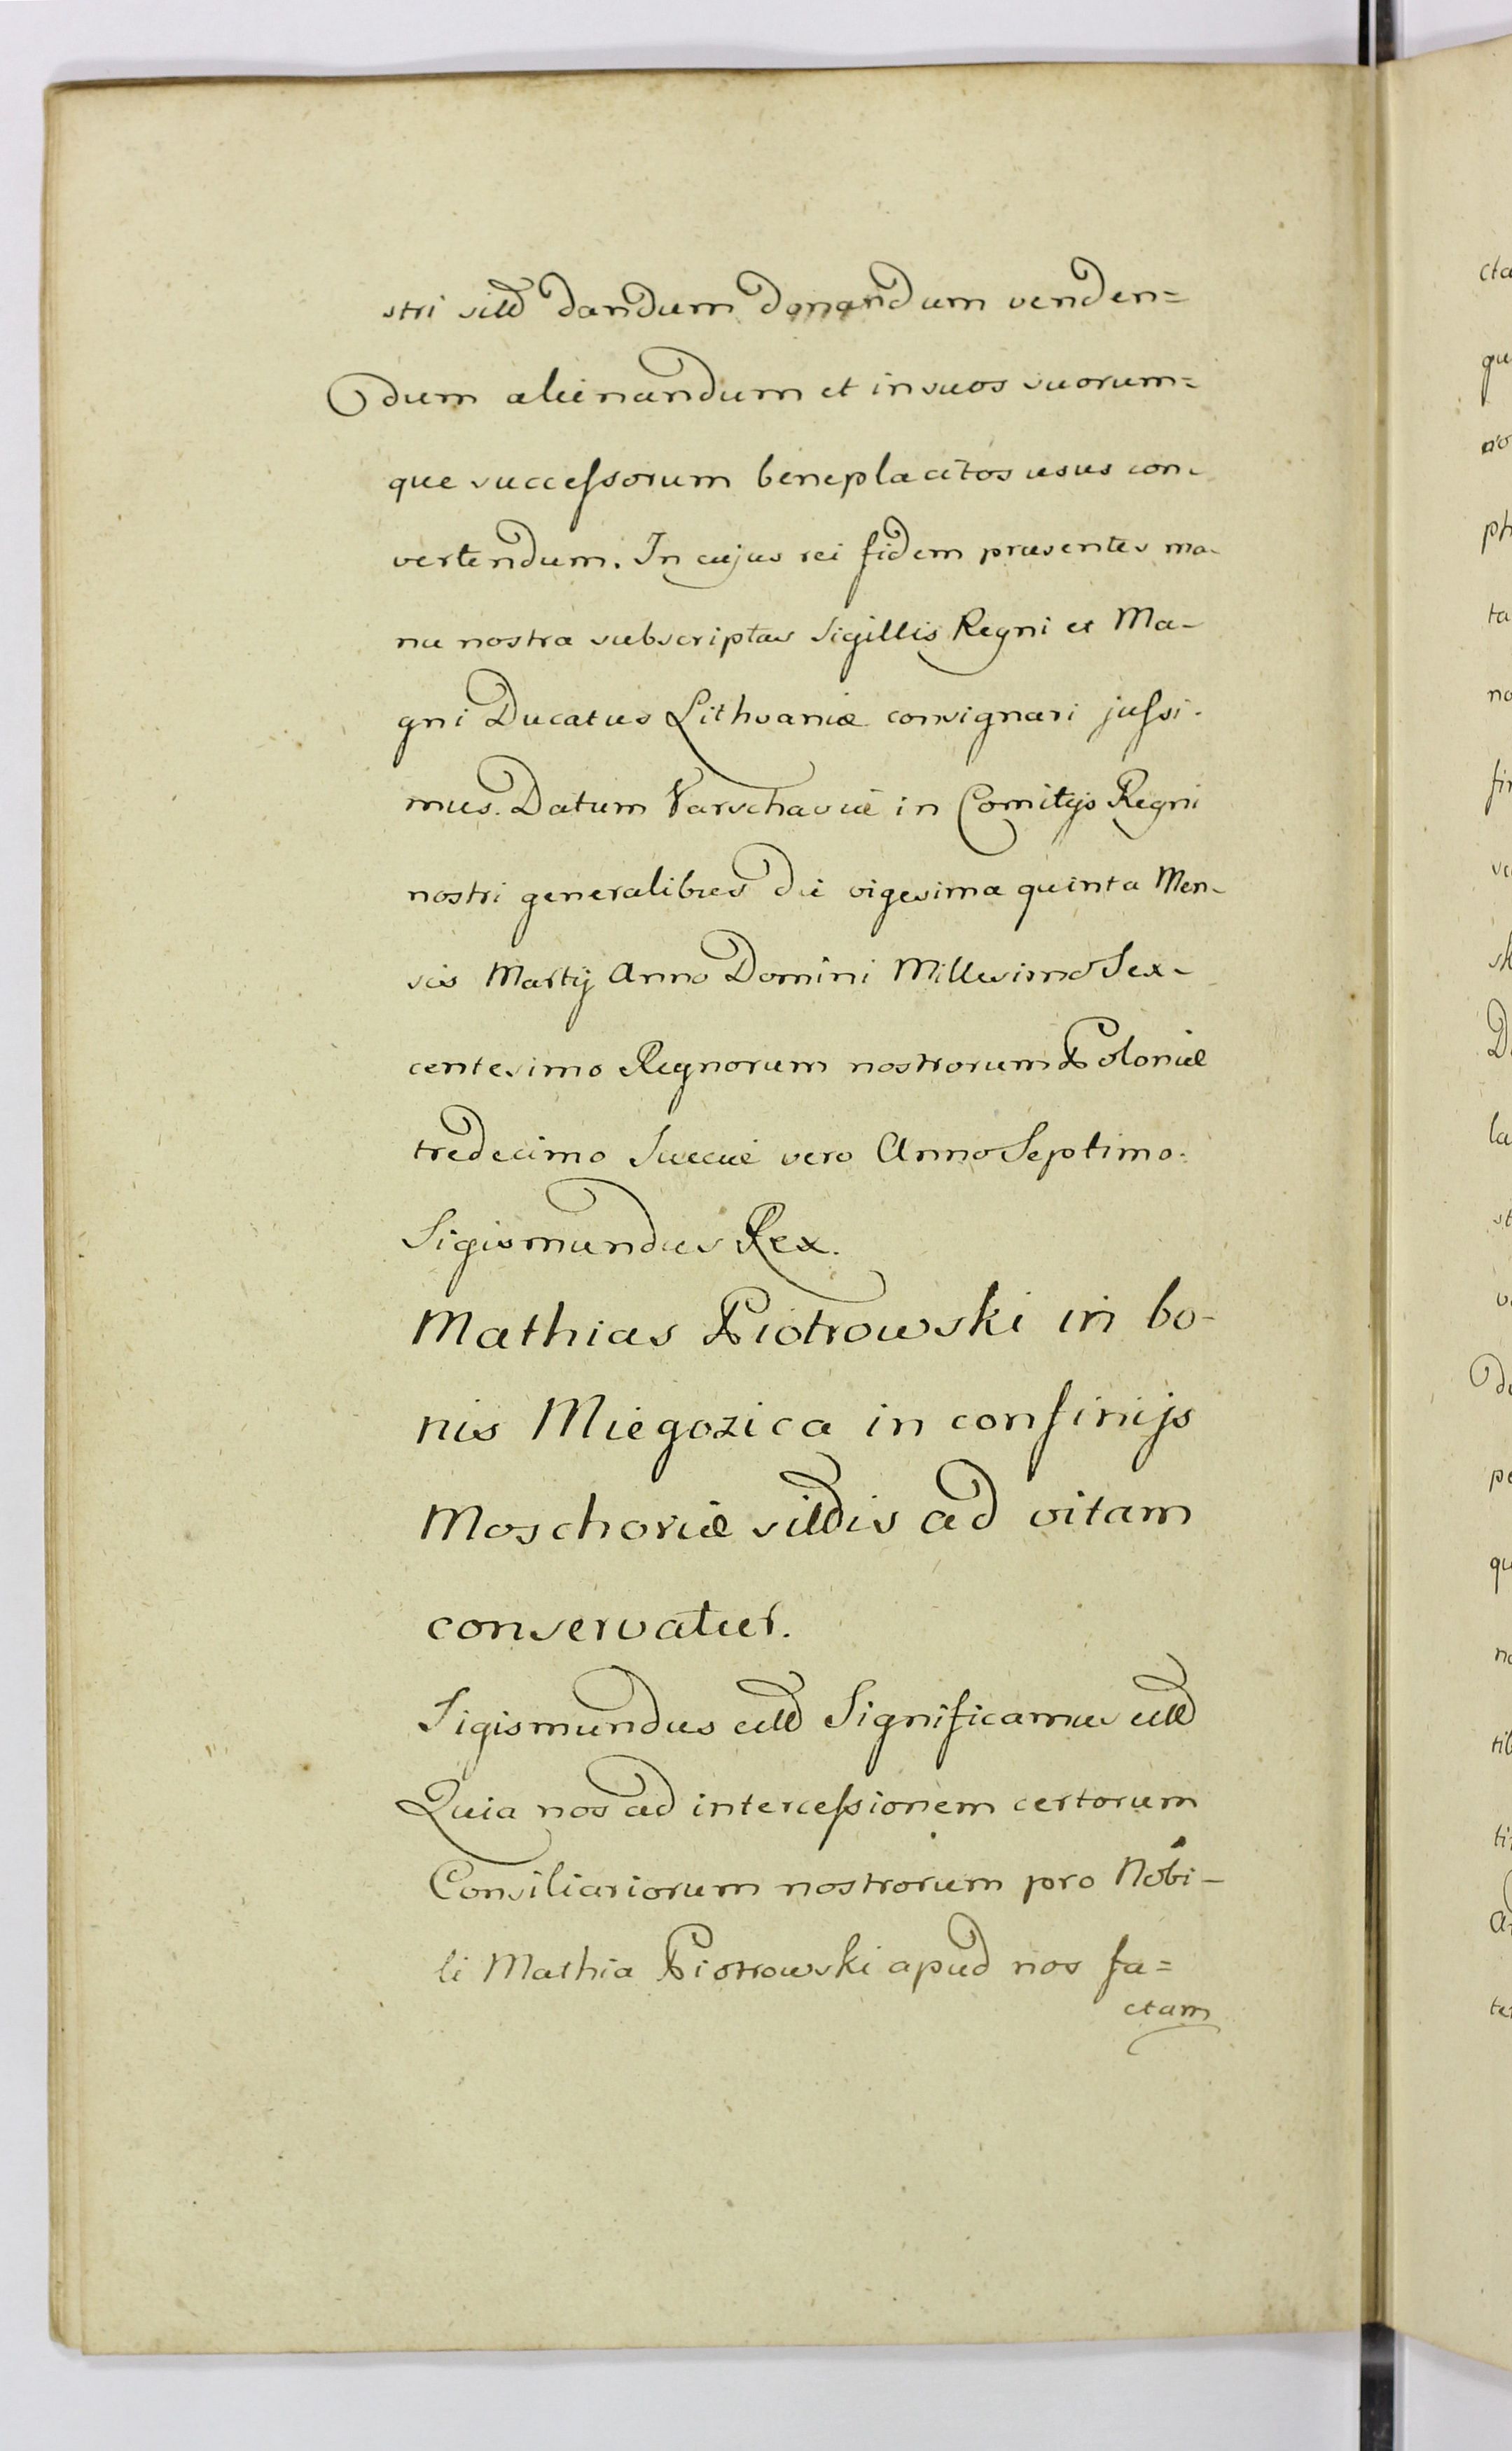 stri silld dandum donandum venden=
dum alienandum et in suos suorum=
que successorum beneplacitos usus con-
vertendum. In cujus rei fidem præsentes ma-
nu nostra subscriptas Sigillis Regni et Ma-
gni Ducatus Lithvaniæ consignari jussi-
mus. Datum Varschaviæ in Comitijs Regni
nostri generalibus die vigesima quinta Men-
sis Martij Anno Domini Millesimo Sex-
centesimo Regnorum nostrorum Poloniæ
tredecimo Sueciæ vero Anno Septimo.
Sigismundus Rex.
Mathias Piotrowski in bo-
nis Miegozica in confinijs
Moschoviæ silldis ad vitam
conservatur.
Sigismundus etc Significamus etc
Quia nos ad intercessionem certorum
Consiliariorum nostrorum pro Nobi-
li Mathia Piotrowski apud nos fa=
ctam
cta
qu
no
ph
ta
no
fi
sk
la
st
pe
qu
ti